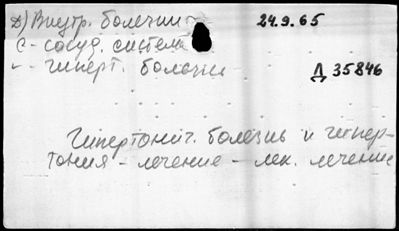 Д) Внутр. болезни 24.9.65
С-сосуд. система
" - гиперт. болезни Д 35846
Гипертонич. болезнь и гипер-
тония - лечение - лек. лечение